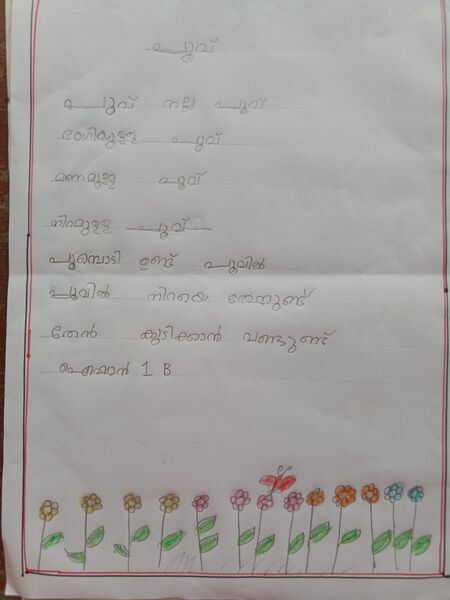 പൂവ്
പൂവ് നല്ല പൂവ്
ഭംഗിയുള്ള പൂവ്
മണമുള്ള പൂവ്
നിറമുള്ള പൂവ്
പൂമ്പൊടി ഉണ്ട് പൂവിൽ
പൂവിൽ നിറയെ തേനുണ്ട്
തേൻ കുടിക്കാൻ വണ്ടുണ്ട്
ഐഷാൻ 1 B